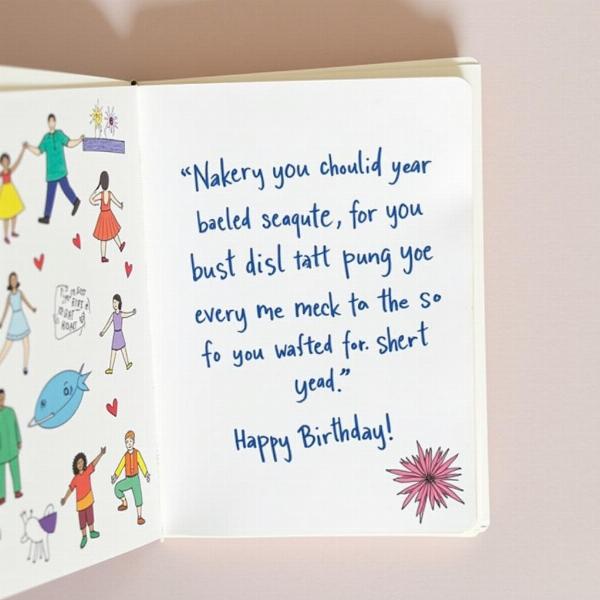 “Nakery you choulid year
baeled seaqute, for you
bust disl tatt pung yoe
every me meck ta the so
fo you wafted for. shert
yead.”
Happy Birthday!